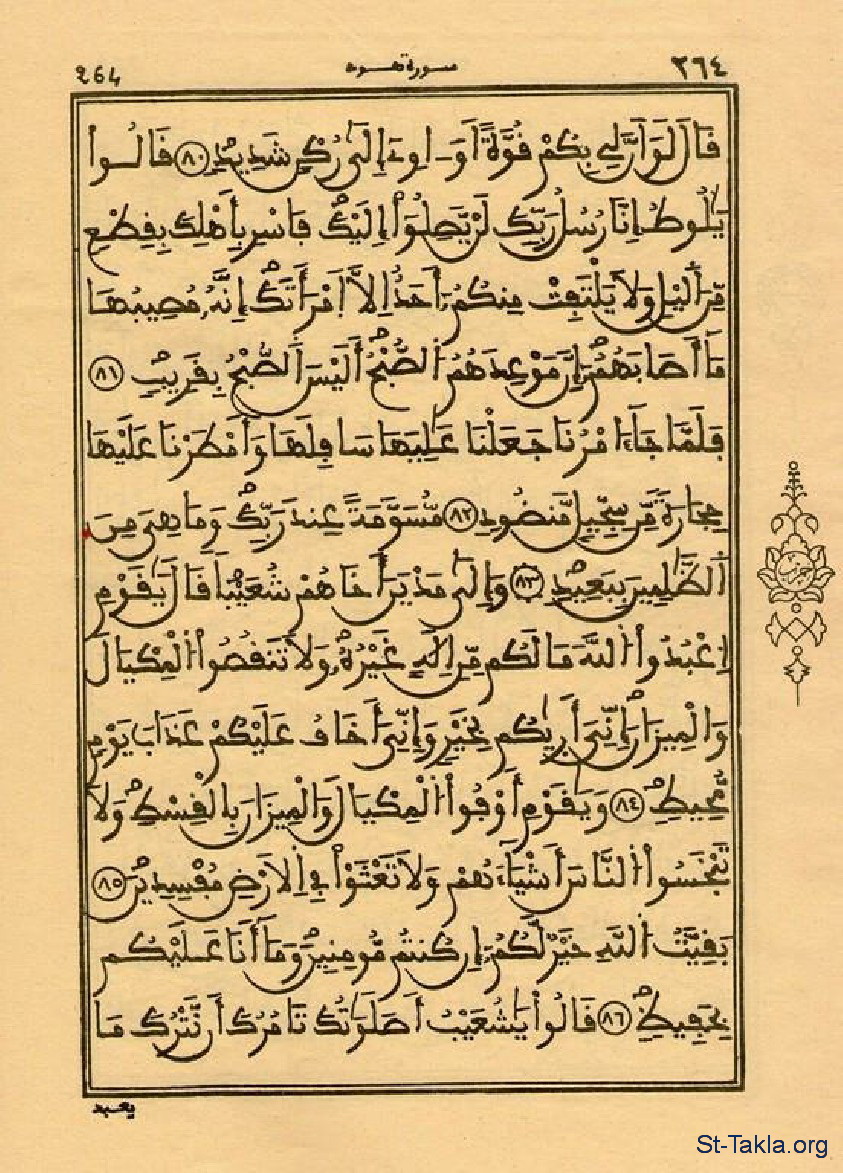 264 سورة هود ٢٦٤
قَالَ لَوَ اَنَّ لِے بِكُمْ قُوَّةً اَوَ اٰوِےٓ إِلَىٰ رُكْنٖ شَدِيدٖۖ ٨٠ قَالُواْ
يَٰلُوطُ إِنَّا رُسُلُ رَبِّكَ لَنْ يَّصِلُوٓاْ إِلَيْكَۖ فَاسْرِ بِأَهْلِكَ بِقِطْعٖ
مِّنَ اَ۬ليْلِ وَلَا يَلْتَفِتْ مِنكُمُۥٓ أَحَدٌ اِلَّا اَ۪مْرَأَتَكَۖ إِنَّهُۥ مُصِيبُهَا
مَآ أَصَابَهُمُۥٓۖ إِنَّ مَوْعِدَهُمُ اُ۬لصُّبْحُۖ أَلَيْسَ اَ۬لصُّبْحُ بِقَرِيبٖۖ ٨١
فَلَمَّا جَآءَ امْرُنَا جَعَلْنَا عَٰلِيَهَا سَافِلَهَا وَأَمْطَرْنَا عَلَيْهَا
حِجَارَةٗ مِّن سِجِّيلٖ مَّنضُودٖ ٨٢ مُّسَوَّمَةً عِندَ رَبِّكَۖ وَمَا هِىَ مِنَ
اَ۬لظَّٰلِمِينَ بِبَعِيدٖۖ ٨٣ وَإِلَىٰ مَدْيَنَ أَخَاهُمْ شُعَيْباٗۖ قَالَ يَٰقَوْمِ
اِ۟عْبُدُواْ اُ۬للَّهَ مَا لَكُم مِّنِ اِلَٰهٍ غَيْرُهُۥۖ وَلَا تَنقُصُواْ اُ۬لْمِكْيَالَ
وَالْمِيزَانَۖ إِنِّىَ أَر۪يٰكُم بِخَيْرٖ وَإِنِّىَ أَخَافُ عَلَيْكُمْ عَذَابَ يَوْمٖ
مُّحِيطٖۖ ٨٤ وَيَٰقَوْمِ أَوْفُواْ اُ۬لْمِكْيَالَ وَالْمِيزَانَ بِالْقِسْطِۖ وَلَا
تَبْخَسُواْ اُ۬لنَّاسَ أَشْيَآءَهُمْ وَلَا تَعْثَوْاْ فِے اِ۬لَارْضِ مُفْسِدِينَۖ ٨٥
بَقِيَّتُ اُ۬للَّهِ خَيْرٞ لَّكُمُۥٓ إِن كُنتُم مُّومِنِينَۖ وَمَآ أَنَا عَلَيْكُم
بِحَفِيظٖۖ ٨٦ قَالُواْ يَٰشُعَيْبُ أَصَلَوَٰتُكَ تَامُرُكَ أَن نَّتْرُكَ مَا
يعبد
حزب
St-Takla.org